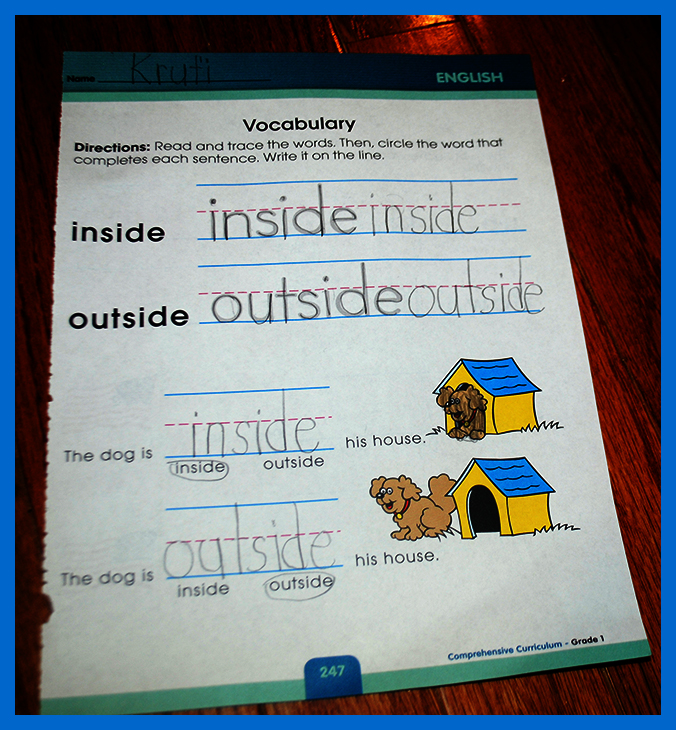 Name Kruti ENGLISH
Vocabulary
Directions: Read and trace the words. Then, circle the word that
completes each sentence. Write it on the line.
inside inside inside
outside outside outside
The dog is inside his house.
inside outside
The dog is outside his house.
inside outside
Comprehensive Curriculum - Grade 1
247